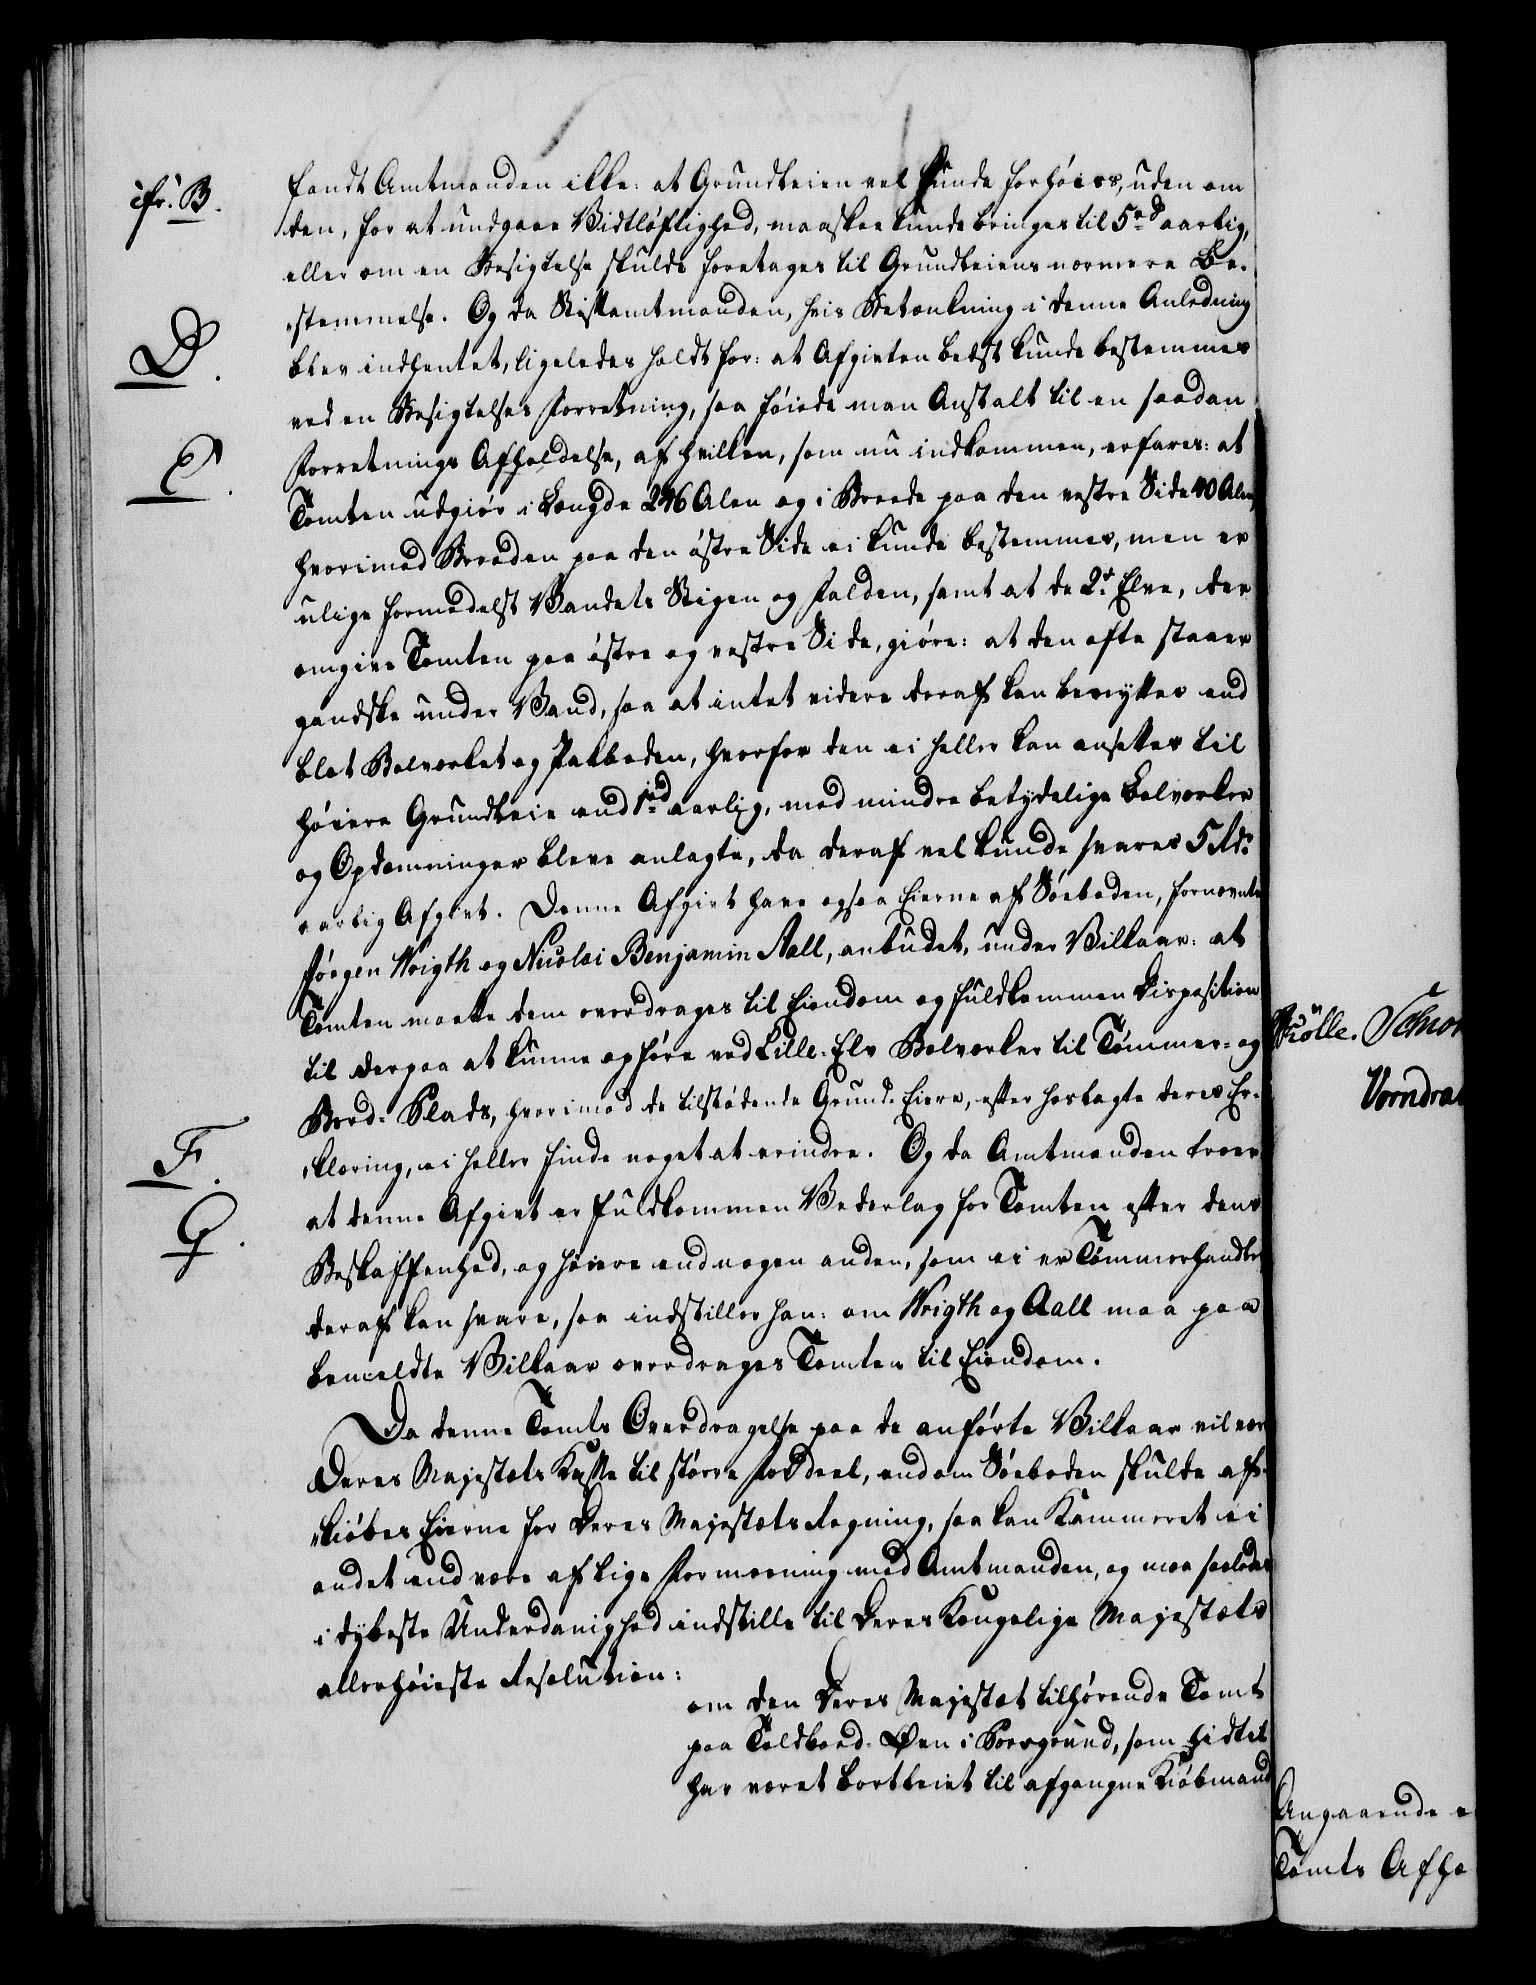 cfr. B.
fandt Amtmanden ikke: at Grundleien vel kunde forhøies, uden om
den, for at undgaae Vidtløftighed, maaskee kunde bringes til 5 rd aarlig,
eller om en Besigtelse skulde foretages til Grundleiens nærmere Be-
stemmelse. Og da Stiftamtmanden, hvis Betænkning i denne Anledning
D.
blev indhentet, ligeledes holdt for: at Afgivten bedst kunde bestemmes
ved en Besigtelses Forretning, saa føiede man Anstalt til en saadan
E.
Forretnings Afholdelse, af hvilken, som nu indkommen, erfares: at
Tomten udgiør i Længde 246 Alen og i Brede paa den vestre Side 40 Alen,
hvorimod Breden paa den østre Side ei kunde bestemmes, men er
ulige formedelst Vandets Stigen og Falden, samt at de 2de Elve, der
omgive Tomten paa østre og vestre Side, giøre: at den ofte staaer
gandske under Vand, saa at intet videre deraf kan benyttes end
blot Bolverket og Pakboden, hvorfor den ei heller kan ansættes til
høiere Grundleie end 1 rd aarlig, med mindre betydelige Bolverker
og Opdæmninger bleve anlagte, da deraf vel kunde svares 5 Rdr
aarlig Afgivt. Denne Afgivt have ogsaa Eierne af Søeboden, fornævnte
Jørgen Wrigth og Nicolai Benjamin Aall, anbudet, under Vilkaar: at
Tomten maatte dem overdrages til Eiendom og fuldkommen Disposition
til derpaa at kunne opføre ved Lille-Elv Bolverker til Tømmer- og
Bord-Plads, hvorimod de tilstødende Grund-Eiere, efter hoslagte deres Er-
F.
klæring, ei heller finde noget at erindre. Og da Amtmanden troer
at denne Afgivt er fuldkommen Vederlag for Tomten efter dens
G.
Beskaffenhed, og høiere end nogen anden, som ei er Tømmerhandler
deraf kan svare, saa indstiller han: om Wrigth og Aall maa paa
bemeldte Vilkaar overdrages Tomten til Eiendom.
Da denne Tomts Overdragelse paa de anførte Vilkaar vil være
Deres Majestæts Kasse til større Fordeel, end om Søeboden skulde af-
kiøbes Eierne for Deres Majestæts Regning, saa kan Kammeret ei
andet end være af lige Formeening med Amtmanden, og maa saaledes
i dybeste Underdanighed indstille til Deres Kongelige Majestæts
allerhøieste Resolution:
om den Deres Majestæt tilhørende Tomt
paa Toldboed-Øen i Porsgrund, som hidtil
har været bortleiet til afgangne Kiøbmand
Angaaende e
Tomts Afho